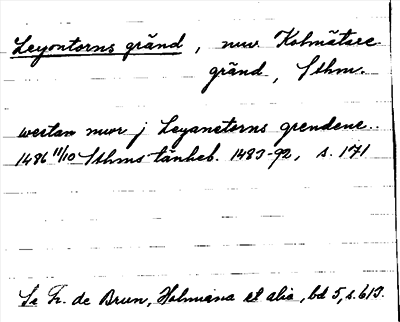 Leyontorns gränd, nuv. Kolmätare
gränd, Sthm.
westan mwr j Leyanetorns grendene..
1486 11/10 Sthms tänkeb. 1483-92, s. 171
Se Fr. de Brun, Holmiana et alia, bd 5, s. 613.